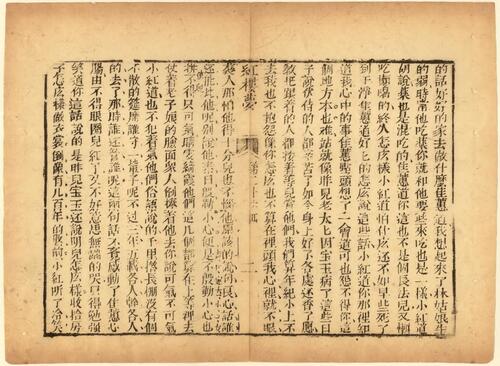 的話好好的家去做什麽佳蕙道我想起來了林姑娘生
的弱時常他吃藥你就和他要些來吃也是一樣小紅道
胡說藥也是混吃的佳蕙道你這也不是個長法兒又懶
吃懶喝的終久怎麽樣小紅道怕什麽還不如早些死了
到干淨佳蕙道好好的怎麽說這些話小紅道你那裡知
道我心中的事佳蕙點頭想了一會道可也怨不得你這
個地方本也難站就像昨兒老太太因寶玉病了這些日
子說伏侍的人都辛苦了如今身上好了各處還香了愿
教把跟着的人都按着等兒賞他們我們算年紀小上不
去我也不抱怨像你怎麽也不算在裡頭我心裡就不服
紅樓夢 第二十六回
襲人那怕他得十分兒也不惱他原該的說句良心話誰
還能比他呢別說他素日殷勤小心便是不殷勤小心也
拚不得只可氣晴雯綺霞他們這幾個都算在上等裡去
仗着老子娘的臉面眾人倒捧着他去你說可氣不可氣
小紅道也不犯着氣他們俗語說的千里搭長棚沒有個
不散的筵席誰守一輩子呢不過三年五載各人幹各人
的去了那時誰還管誰呢這兩句話不覺感動了佳蕙心
腸由不得眼圈兒紅了又不好意思無端的哭只得勉強
笑道你這話說的是昨兒寶玉還說明兒怎麽樣收拾房
子怎麽樣做衣裳倒像有幾百年的熬煎小紅聽了冷笑